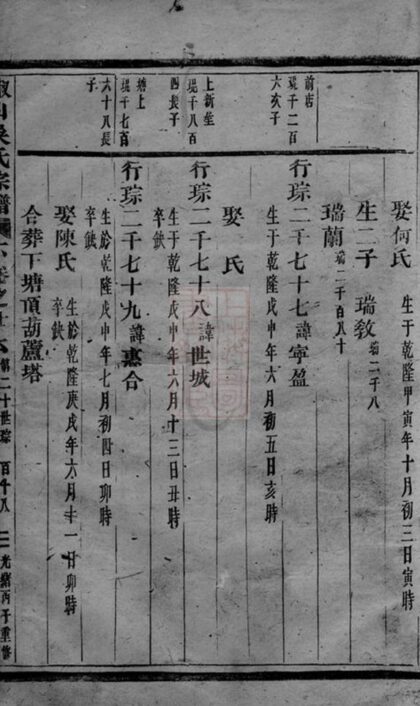 娶何氏 生于乾隆甲寅年十月初三日寅時
生二子 瑞教 瑞二千八
瑞蘭 瑞二千百八十
前店
琨千二百
六次子
行琮二千七十七諱寧盈
生于乾隆戊申年六月初五日亥時
娶 氏
上新屋
琨千八百
四長子
行琮二千七十八諱世城
生于乾隆戊申年六月十三日丑時
卒缺
塘上
琨千七百
六十八長
子
行琮二千七十九諱惠合
生於乾隆戊申年七月初四日卯時
卒缺
娶陳氏 生於乾隆庚戌年六月十一日卯時
卒缺
合葬下塘頂葫蘆塔
山吳氏宗譜 卷之 第二十世琮 光緒丙子重修